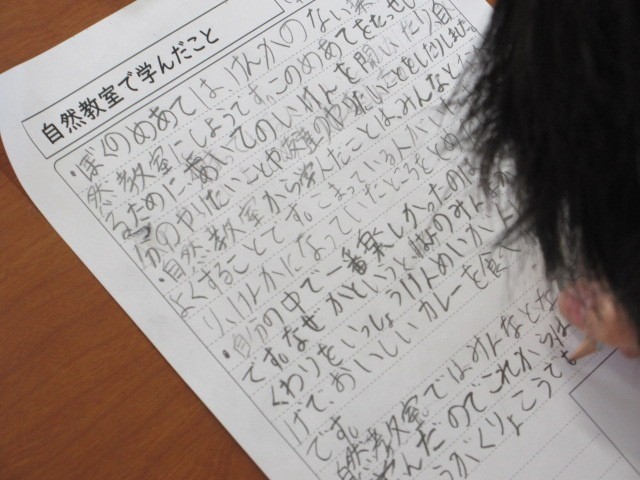 自然教室で学んだこと
・ぼくのめあては、けんかのない
然教室にしようってす。このめあてをたっせい
るために、あいてのいけんを聞いたり自
分のやりたいことや友達のやりたいことをしたりします
・自然教室から学んだことは、みんなと
よくすることです。こまっている人がい
り、けんかになっていたところをとめ
・自分の中で一番楽しかったのは
です。なぜかというと、ほのみん
くわりをいっしょうけんめいか
げて、おいしいカレーを食
です。
自然教室ではみんなとな
学んだのでこれからは
うがくりょこうでも